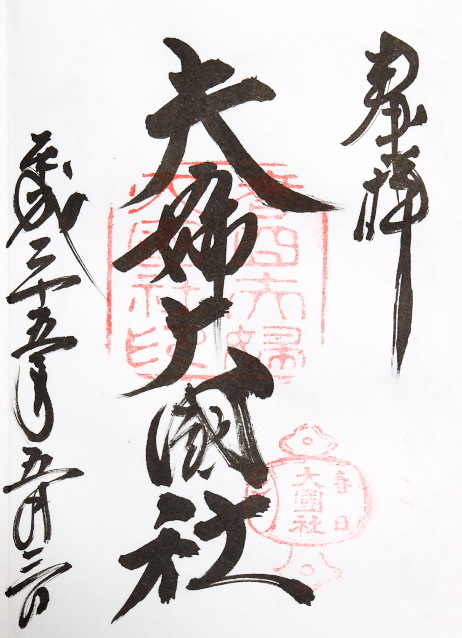 奉拝
夫婦大國社
平成二十五年五月三日
春日夫婦
大國社印
春日
大國社